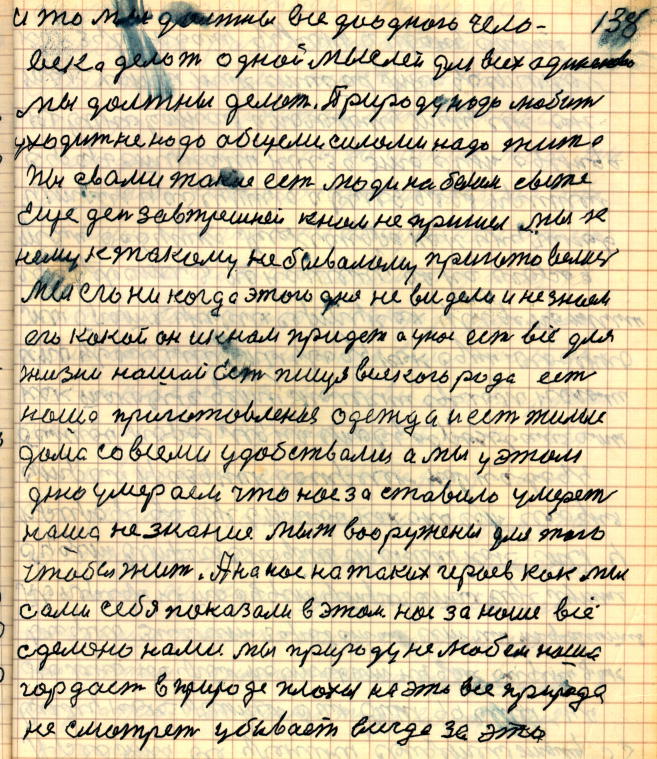 и то мы должны все доодного чело- 138
века делат одной мыслей для всех одиноково
мы должны делат. Природу надо любит
уходит не надо общеми силоми надо жит.
Мы свами такие ест люди на белом свете
Еще ден завтрешней кнам не пришел мы к
нему к такому не бывалому приготовелис
Мы его никогда этого дня не видели и не знаем
его какой он и кнам придет а унас ест всё для
жизни нашай ест пищя всякого рода ест
наша приготовленая одежда и ест жилые
дома со всеми удобствами а мы у этом
дню умераем что нас за ставило умерет
наша не знание мыж вооружены для того
чтобы жит. А на нас на таких героев как мы
сами себя показали в этом нас за наше всё
сделоно нами мы природу не любем наша
гордаст в природе плохая на это все природа
не смотрет убывает всигда за это